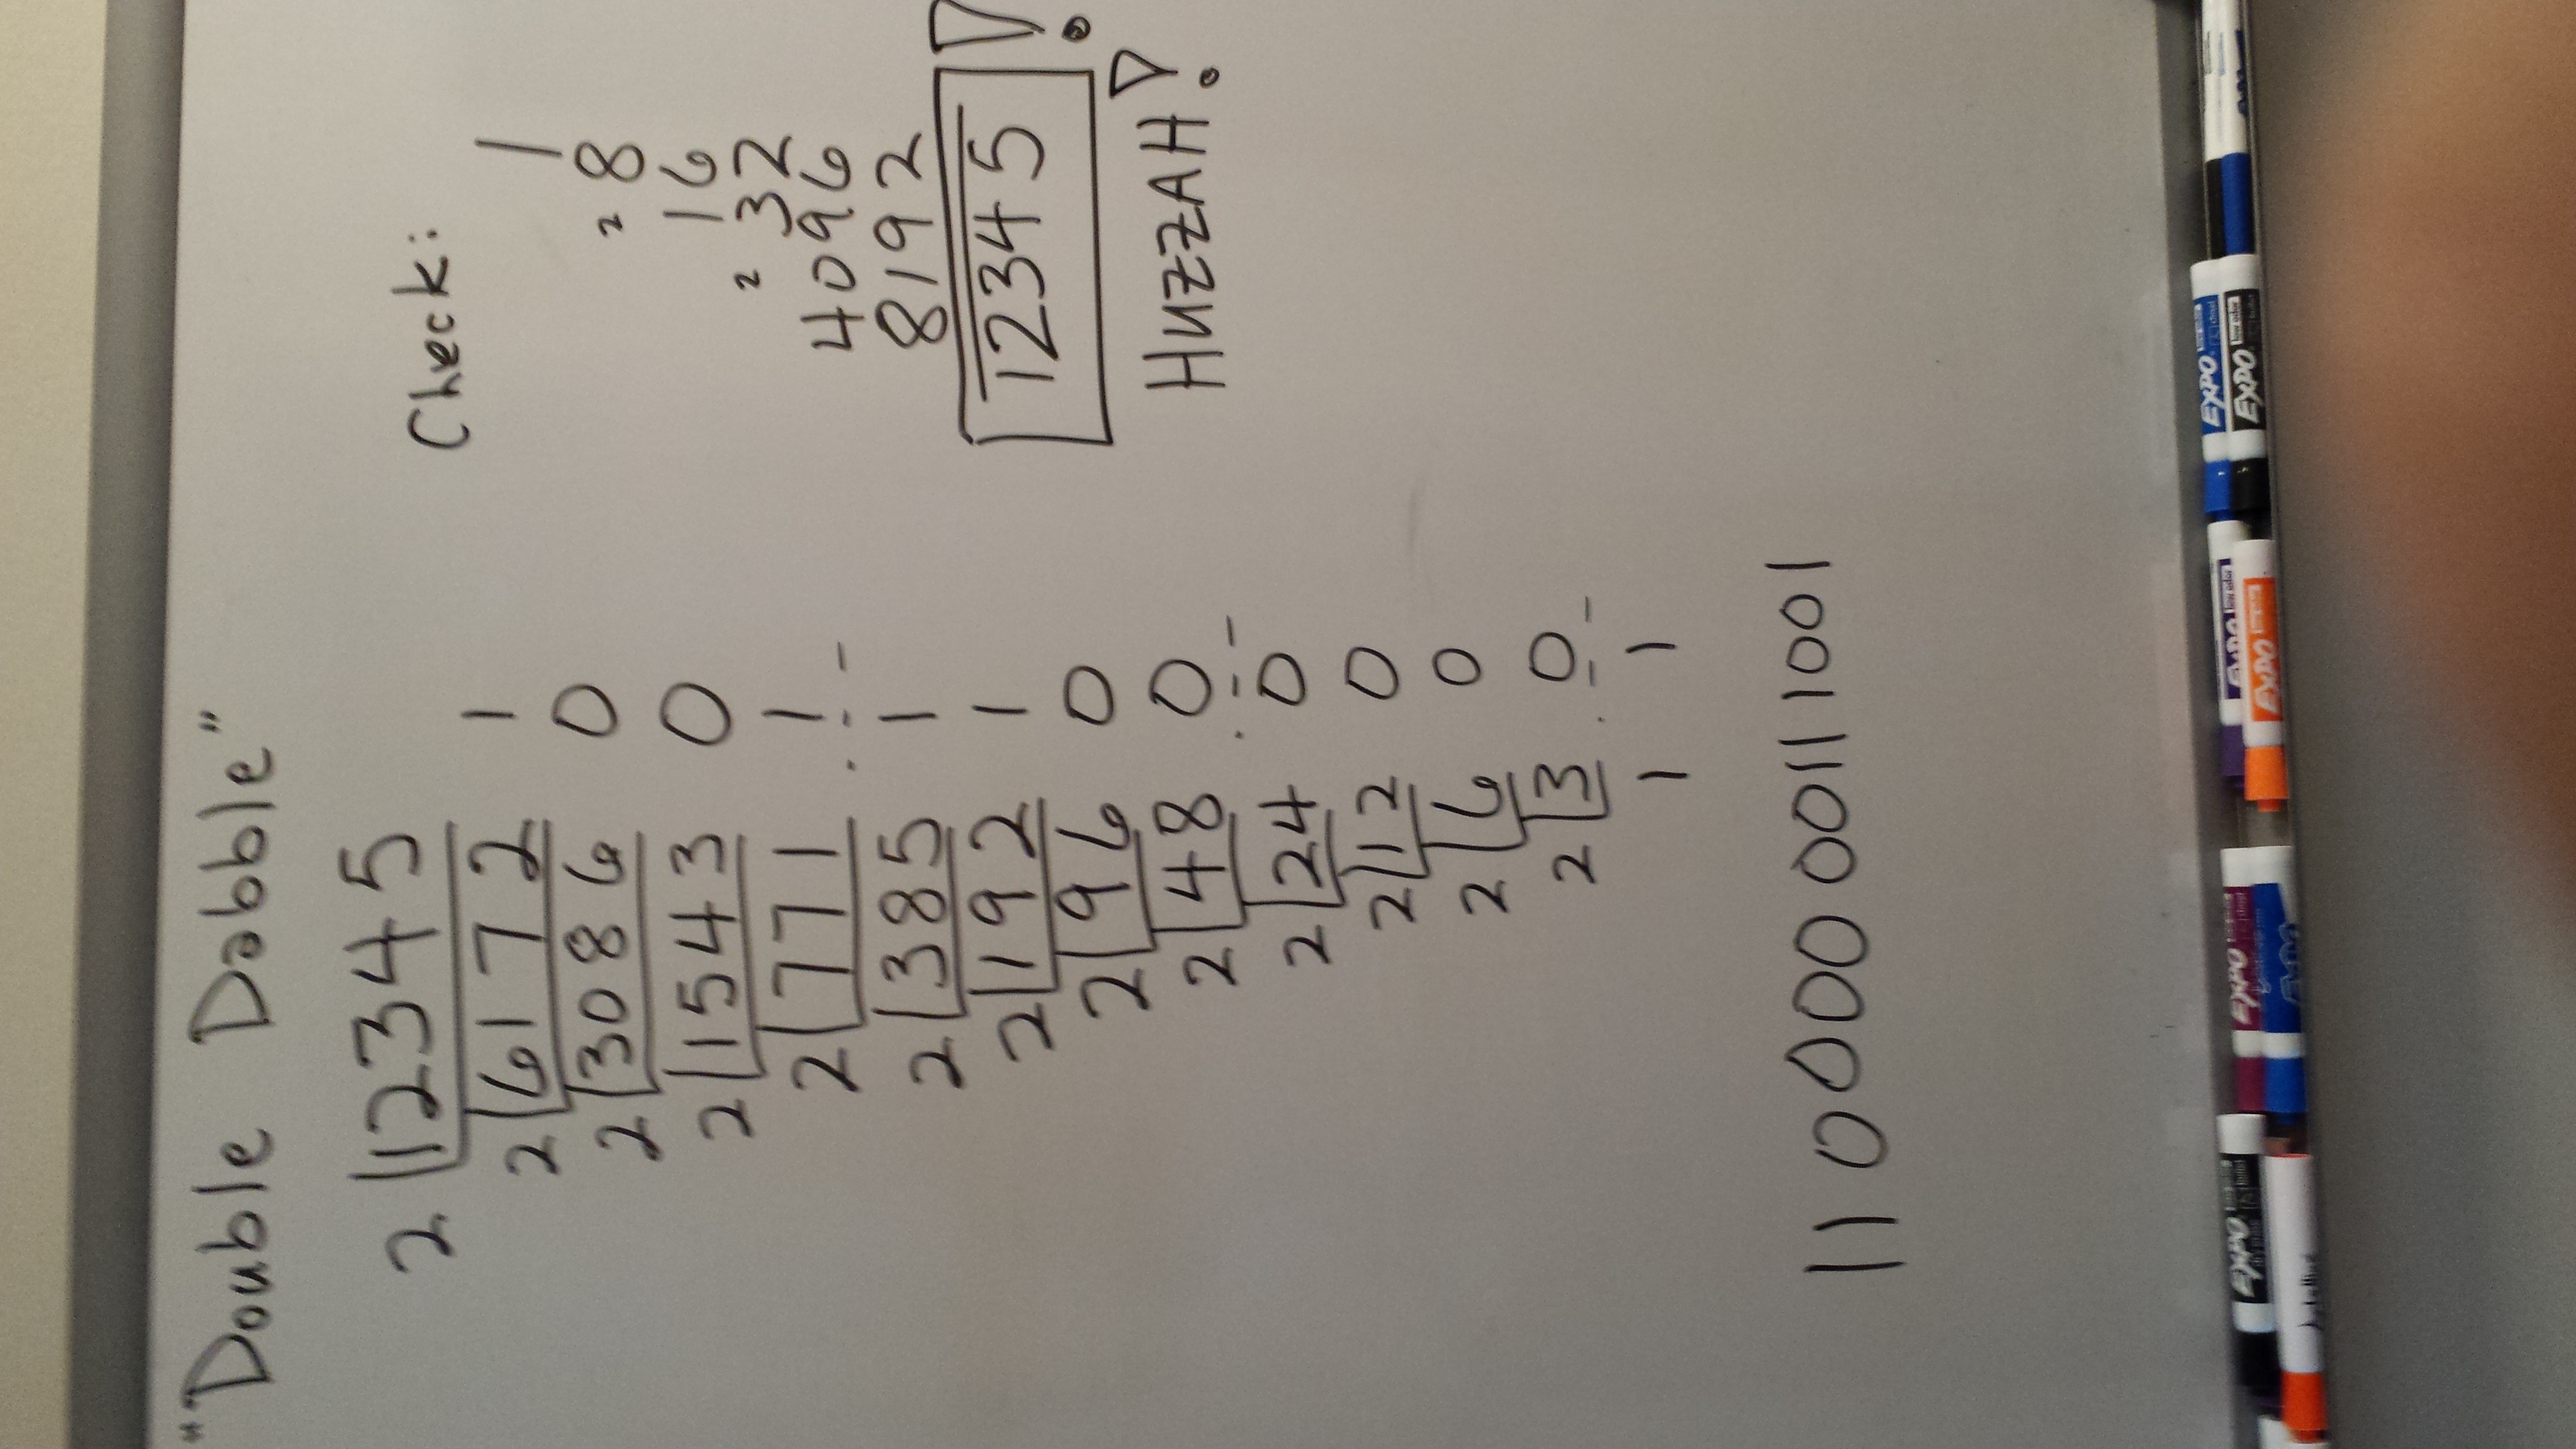 "Double Dabble"
2 12345
2 6172 1
2 3086 0
2 1543 0
2 771 1
2 385 1
2 192 1
2 96 0
2 48 0
2 24 0
2 12 0
2 6 0
2 3 0
1 1
11 0000 0011 1001
Check:
1
2 8
16
2 32
4096
8192
12345 !
HUZZAH!
EXPO
EXPO
EXPO
EXPO
EXPO
EXPO
EXPO